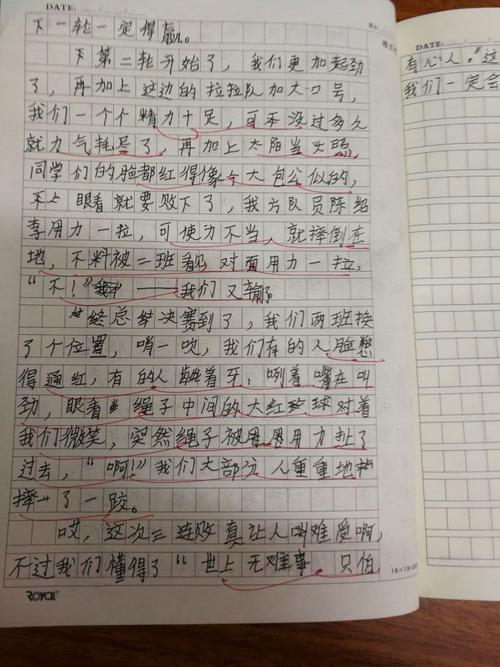 DATE:
下一轮一定得赢。
下第二轮开始了，我们更加起劲
了，再加上这边的拉拉队加大口号，
我们一个个精力十足，可不没过多久
就力气耗尽了，再加上太阳当头照，
同学们的脸都红得像个大包公似的，
眼看就要败下了，我方队员陈绍
李用力一拉，可使力不当，就摔倒在
地，不料被二班看见对面用力一拉，
“不！”——我们又输了。
终总结决赛到了，我们两班换
了个位置，哨一吹，我们有的人脸憋
得通红，有的人龇着牙，咧着嘴在叫
劲，眼看绳子中间的大红球对着
我们微笑，突然绳子被用力扯了
过去，“啊！”我们大部分人重重地
摔了一跤。
哎，这次三连败真让人难受啊，
不过我们懂得了“世上无难事，只怕
ROYAL
DATE:
有心人。”这
我们一定会